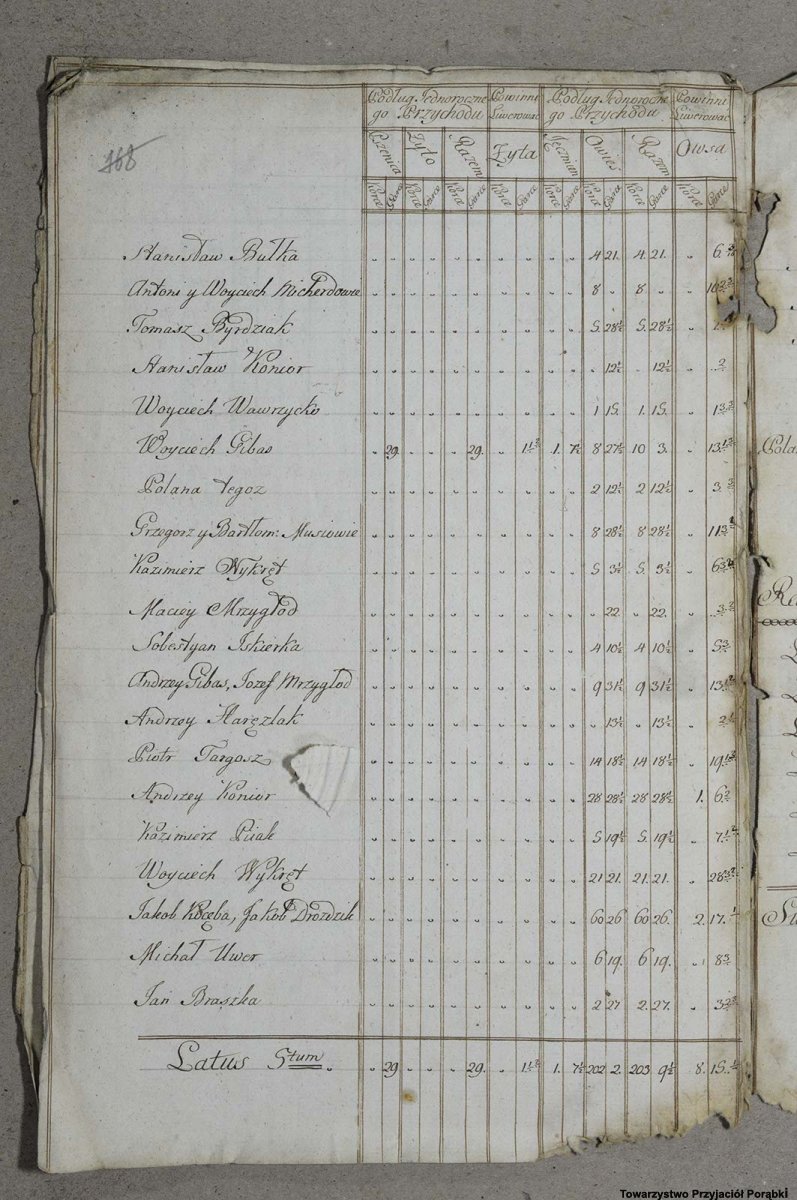 168
Podług Jednoroczne Powinni Podług Jednoroczne Powinni
go Przychodu Liwerować go Przychodu Liwerować
Pszenica Zyto Razem Zyta Jęczmian Owies Razem Owsa
Korce Garce Korce Garce Korce Garce Korce Garce Korce Garce Korce Garce Korce Garce Korce Garce
Stanisław Bułka 4 21. 4. 21. 6
Antoni y Woyciech Micherdowie 8 8
Tomasz Byrdziak 5. 28½ 5. 28½
Stanisław Konior 12½ 12½ 2
Woyciech Wawrzycko 1 15. 1. 15. 1
Woyciech Gibas 29. 29. 1 1. 7½ 8 27½ 10 3. 13
Polana tegoz 2 12½ 2 12½ 3
Grzegorz y Bartłom: Musiowie 8 28½ 8 28½ 11
Kazimierz Wykręt 5 3½ 5. 3½ 6
Maciey Mrzygłod 22 22. 3
Sobestyan Iskierka 4 10½ 4 10½ 5
Andrzey Gibas, Jozef Mrzygłod 9 31½ 9 31½ 13
Andrzey Haręzlak 13½ 13½ 2
Piotr Targosz 14 18½ 14 18½ 19
Andrzey Konior 28 28½ 28 28½ 1. 6
Kazimierz Ptak 5 19½ 5. 19½ 7
Woyciech Wykręt 21 21. 21. 21. 28
Jakob Kocęba, Jakob Drozdzik 60 26 60 26. 2. 17.
Michał Uwer 6 19. 6 19. 8
Jan Braszka 2 27 2. 27. 3
Latus Stum 29 29. 1 1. 7½ 202 2. 203 9½ 8. 15.
Towarzystwo Przyjaciół Porąbki